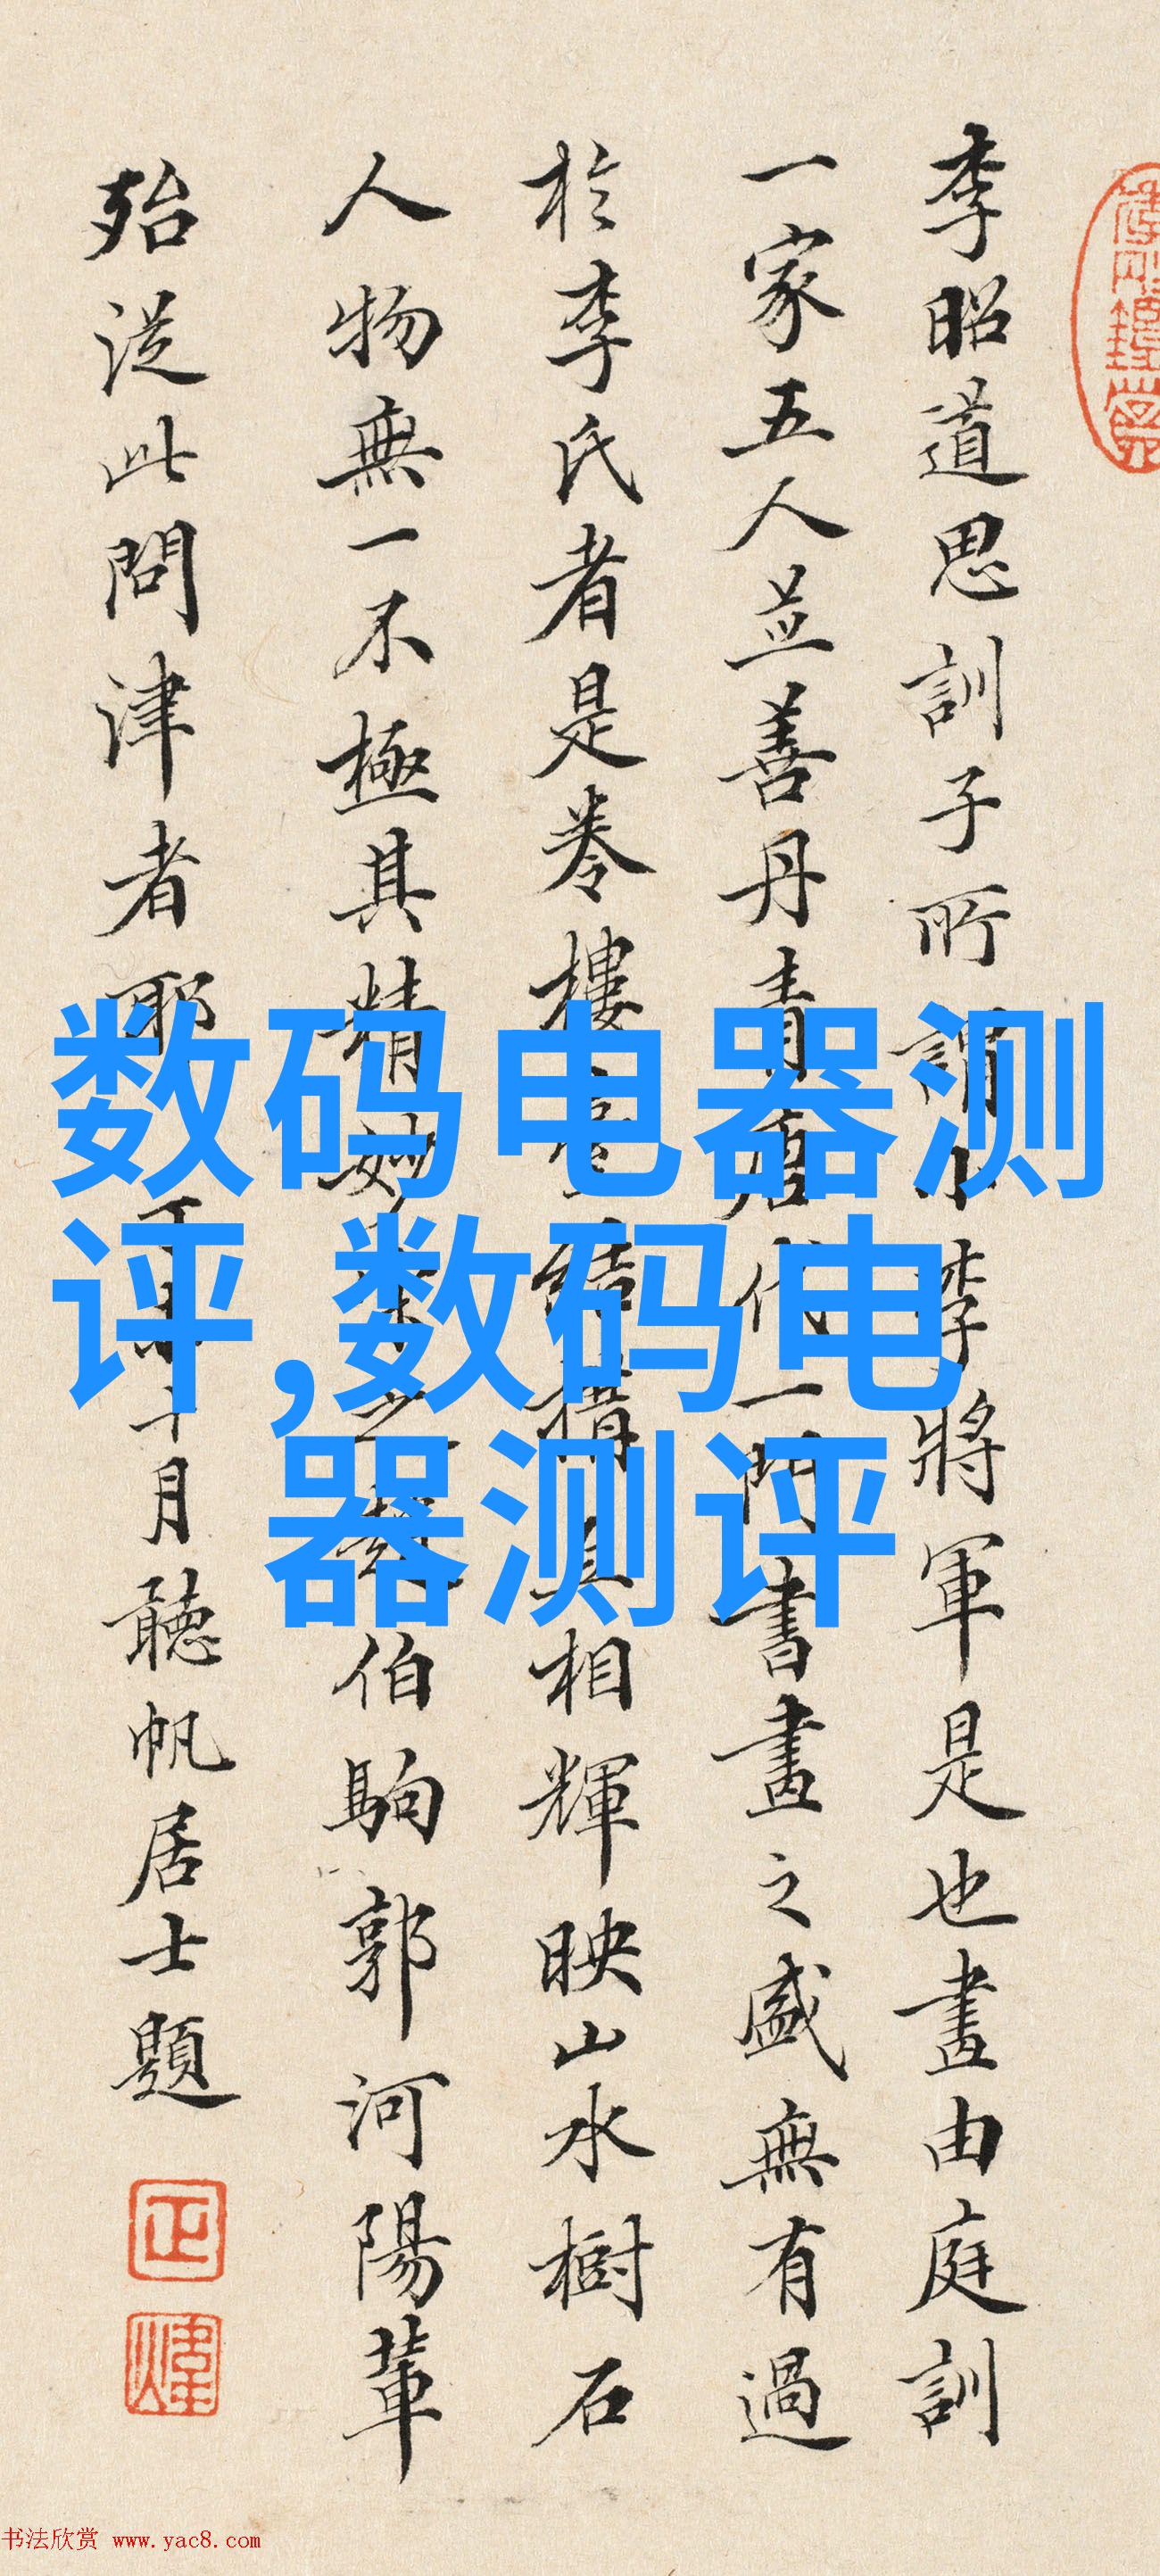 李昭道思訓子所謂小李將軍是也畫由庭訓
一家五人並善丹青唐代一門書畫之盛無有過
於李氏者是卷樓臺結構具相輝映山水樹石
人物無一不極其精妙 之 伯駒郭河陽輩
殆從此問津者耶 十月聽帆居士題
数码电器测
评,数码电
器测评
书法欣赏 www.yac8.com